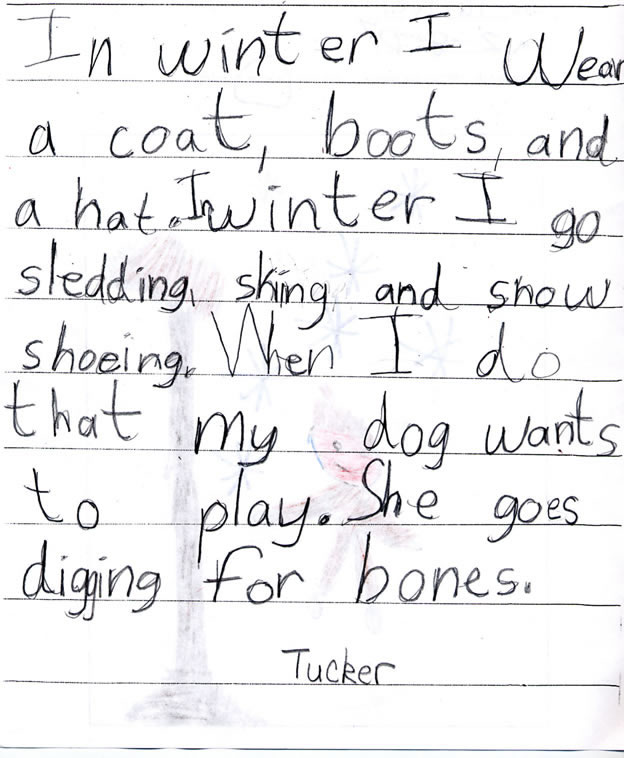 In winter I Wear
a coat, boots, and
a hat. In winter I go
sledding, sking, and snow
shoeing. When I do
that my dog wants
to play. She goes
digging for bones.
Tucker